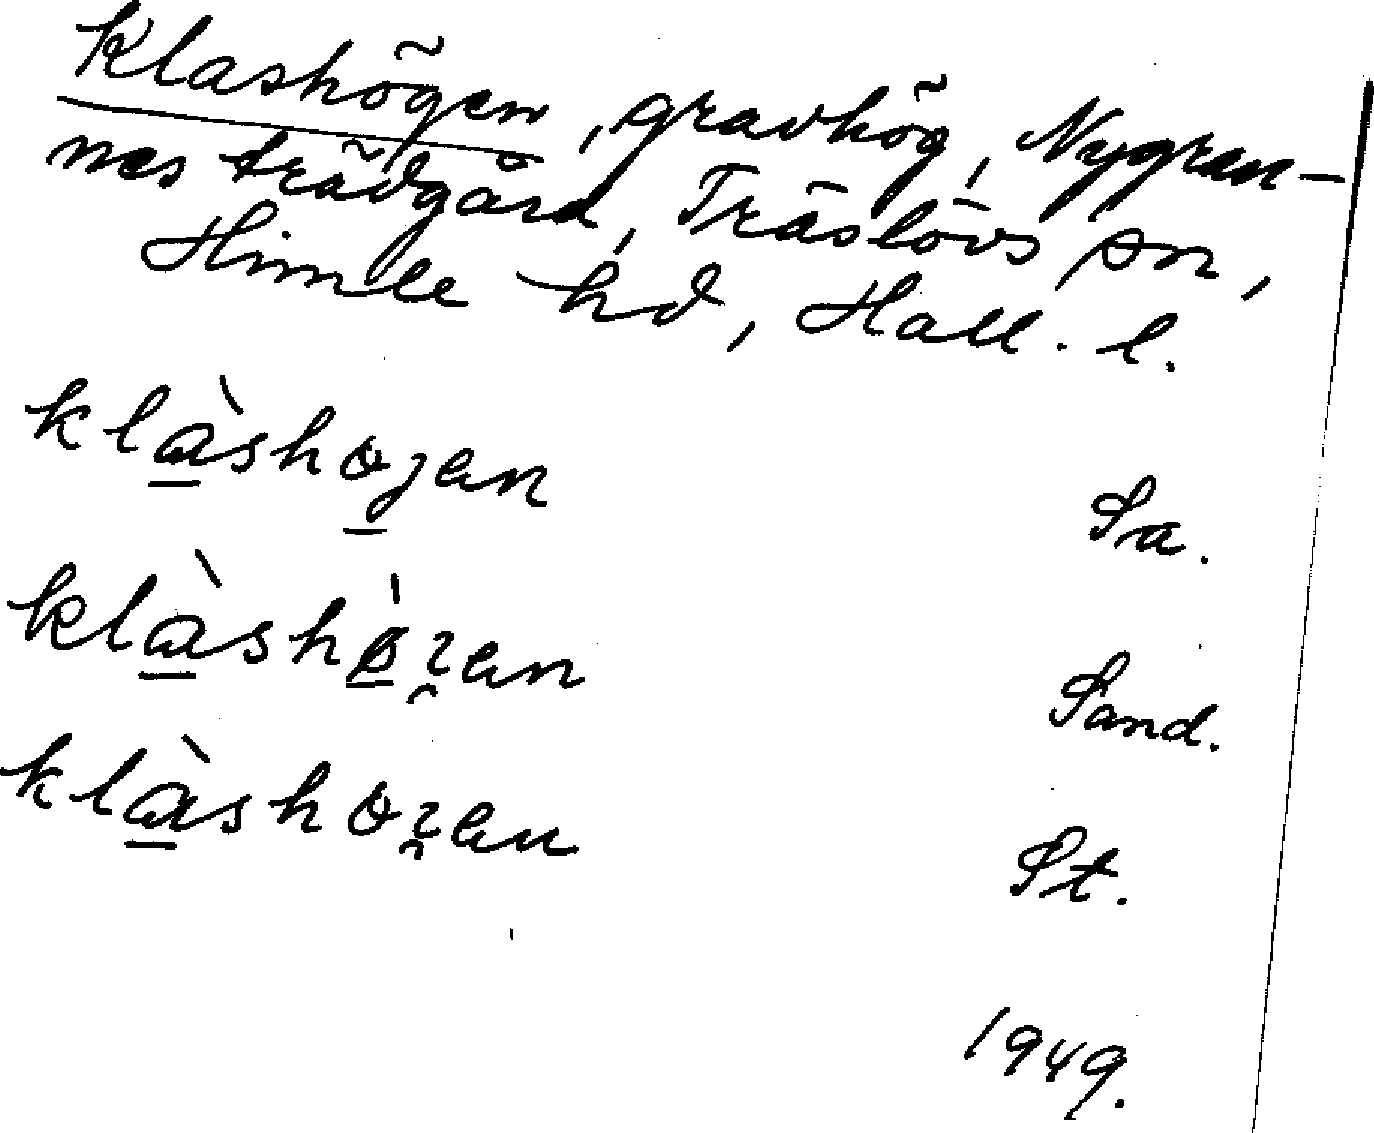 Klashögen, gravhög, Nygren-
nes trädgård, Träslövs sn,
Himle hd, Hall. l.
klàshøjen Sa.
klàshø̀ʒen Sand.
klàshøʒen St.
1949.